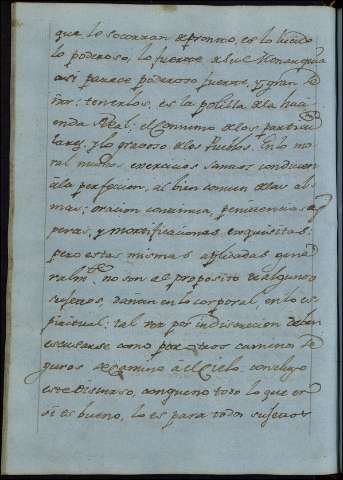 que lo socorran de promto, es lo lucido
lo poderoso, lo fuerte de su Monarquia
asi parece poderoso fuerte, y gran Se
ñor: tenerlos, es la polilla de la haci
enda Real; el comun de los particu
lares, y lo gravoso de los Pueblos. En lo mo
ral muchos exercicios santos conducen
a la perfecion, al bien comun de las al
mas; oracion continua, penitencias as
peras, y mortificaciones exquisitas;
pero estas mismas aplicadas gene
ralmte. no son al proposito de algunos
sujetos, dañan en lo corporal, en lo es
piritual: tal vez por indiscrecion deben
escusarse como por otros caminos se
guros se camino a el Cielo. Con eligo
este Discurso, con que no todo lo que en
si es bueno, lo es para todos sujetos